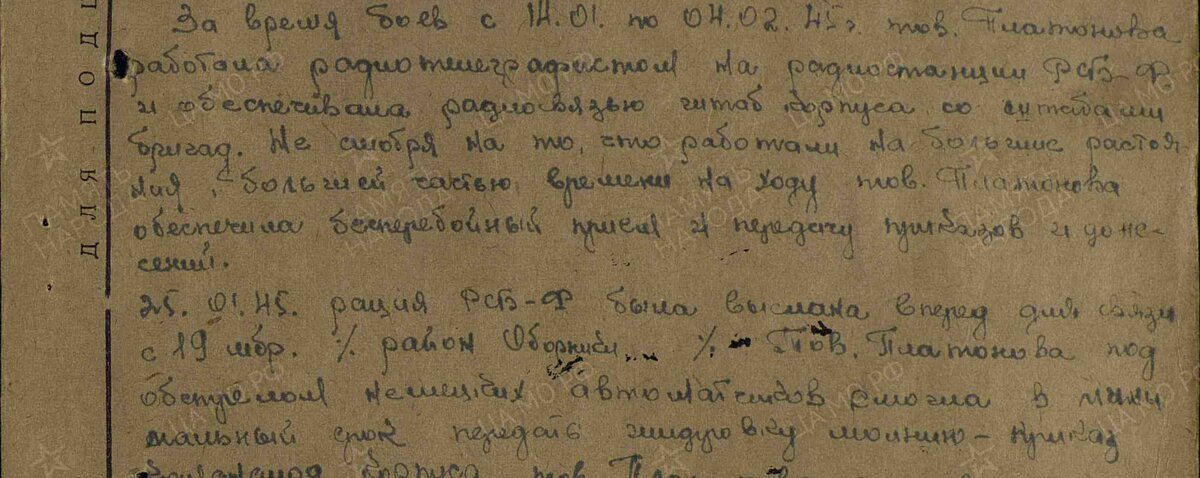 За время боев с 14.01. по 04.02.45 г. тов. Платонова
работала радиотелеграфистом на радиостанции РСБ-Ф
и обеспечивала радиосвязью штаб корпуса со штабами
бригад. Не смобря на то, что работали на большие растоя-
ния, большей частью времени на ходу тов. Платонова
обеспечила бесперебойный прием и передачу приказов и доне-
сений.
25.01.45. рация РСБ-Ф была выслана вперед для связи
с 19 мбр. /. район Оборники ./. Тов. Платонова под
обстрелом немецких автоматчиков смогла в мини
мальный срок передать шифровку молнию - приказ
корпуса тов.
ДЛЯ ПОД